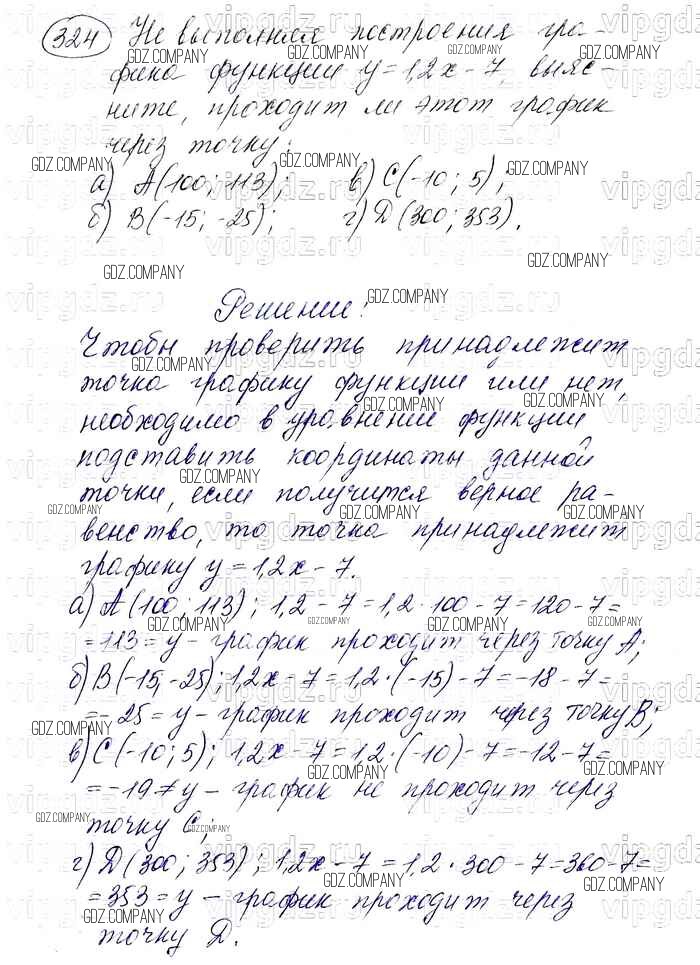 324 Не выполняя построения гра-
фика функции y = 1,2x - 7, выяс-
ните, проходит ли этот график
через точку:
а) A(100; 113); в) C(-10; 5);
б) B(-15; -25); г) D(300; 353).
Решение:
Чтобы проверить принадлежит
точка графику функции или нет,
необходимо в уравнение функции
подставить координаты данной
точки, если получится верное ра-
венство, то точка принадлежит
графику y = 1,2x - 7.
а) A(100; 113); 1,2 - 7 = 1,2 · 100 - 7 = 120 - 7 =
= 113 = y - график проходит через точку A;
б) B(-15; -25); 1,2x - 7 = 1,2 · (-15) - 7 = -18 - 7 =
= -25 = y - график проходит через точку B;
в) C(-10; 5); 1,2x - 7 = 1,2 · (-10) - 7 = -12 - 7 =
= -19 ≠ y - график не проходит через
точку C;
г) D(300; 353); 1,2x - 7 = 1,2 · 300 - 7 = 360 - 7 =
= 353 = y - график проходит через
точку D.
GDZ.COMPANY
vipgdz.ru